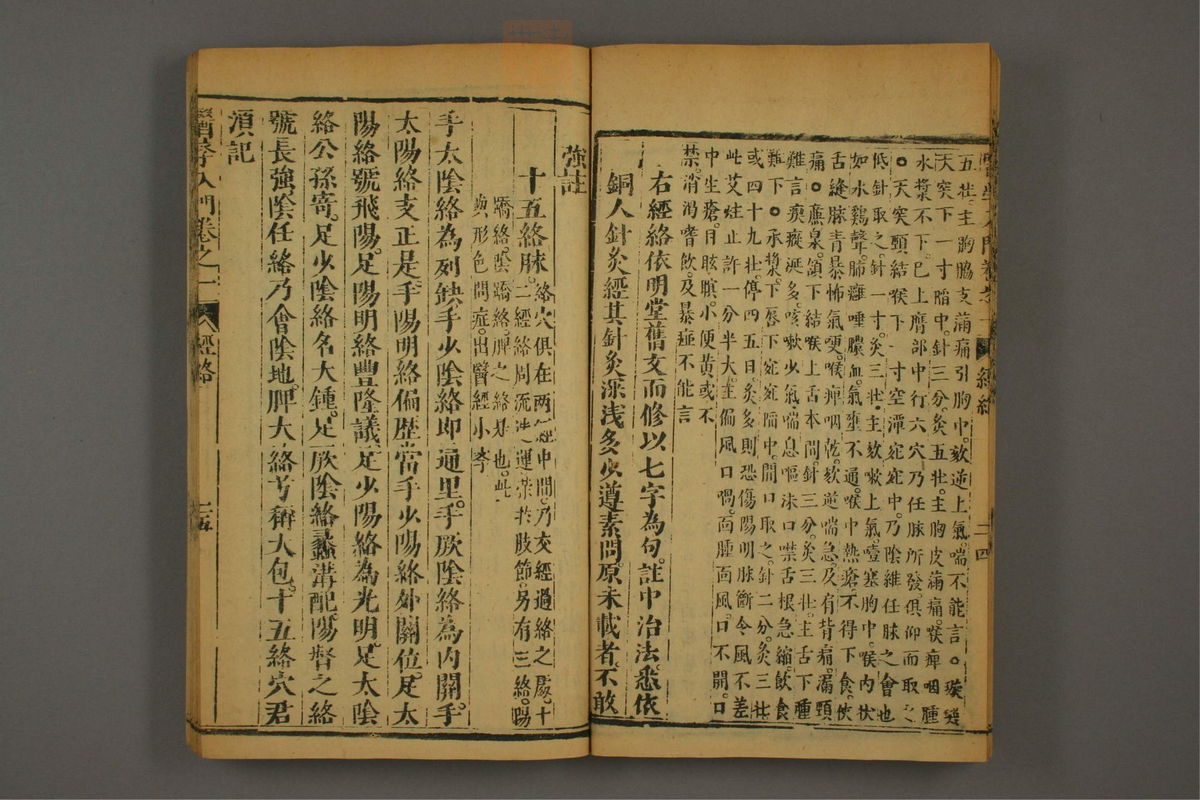 五壯。主胸脇支滿痛引胸中。欬逆上氣喘不能言。○璇璣
天突下一寸陷中。針三分。灸五壯。主胸皮滿痛。喉痺咽腫
水漿不下。已上膺部中行六穴乃任脉所發。俱仰而取之
○天突頸結喉下一寸空潭宛宛中。乃陰維任脉之會也
低針取之。針一寸。灸三壯。主欬嗽上氣。噎塞胸中。喉內狀
如水鷄聲。肺癰唾膿血。氣壅不通。喉中熱瘡不得下食。俠
舌縫脉青暴怖氣哽。喉痺咽乾。欬逆喘急。及有背痛。漏頸
痛。○廉泉。頷下結喉上舌本間。針三分。灸三壯。主舌下腫
難言瘈瘲涎多。咳嗽少氣喘息嘔沫口噤舌根急縮。飲食
難下。○承漿。下唇下宛宛陷中。開口取之。針二分。灸三壯
或四十九壯。停四五日。灸多則恐傷陽明脉斷令風不差
此艾炷止許一分半大。主偏風口喎。面腫面風。口不開。口
中生瘡。目眩瞑。小便黃或不
禁。消渴嗜飲。及暴瘂不能言
右經絡依明堂舊文而修以七字為句。註中治法悉依
銅人針灸經其針灸深淺多少遵素問。原未載者。不敢
強註
十五絡脉。絡穴俱在兩經中間。乃交經過絡之處。十
二經絡周流迅運榮於肢節。另有三絡。陽
蹻絡。陰蹻絡。脾之絡是也。此
與形色問症。出醫經小學
手太陰絡為列缺手少陰絡即通里。手厥陰絡為內關。手
太陽絡支正是。手陽明絡偏歷當手少陽絡外關位。足太
陽絡號飛陽。足陽明絡豐隆議。足少陽絡為光明。足太陰
絡公孫寄。足少陰絡名大鍾。足厥陰絡蠡溝配。陽督之絡
號長強陰任絡乃會陰地。脾大絡兮稱大包。十五絡穴君
須記
醫學入門卷之一 經絡